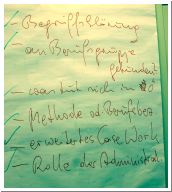 - Begriffsklärung
- an Berufsgruppe
gebunden?
- was tut sich in
- Methode od. Berufsbez
- erweitertes Case Work
- Rolle der Administrat